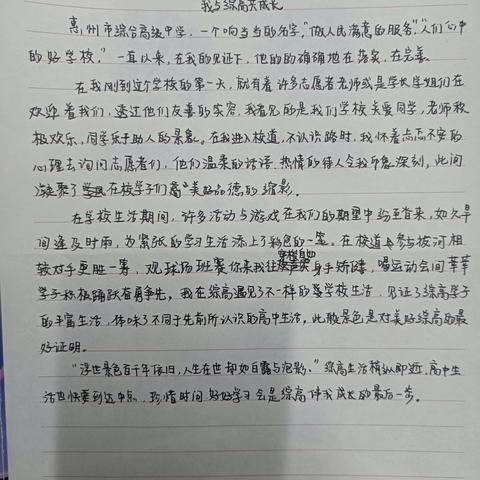 我与综高共成长
惠州市综合高级中学，一个响当当的名字，"做人民满意的服务"，"人们心中
的好学校。"一直以来，在我的见证下，他的的确确地在落实，在完善。
在我刚到这个学校的第一天，就有着许多志愿者老师或是学长学姐们在
欢迎着我们，透过他们友善的笑容，我看见的是我们学校关爱同学，老师积
极欢乐，同学乐于助人的景象。在我进入校道，不认识路时，我怀着忐忑不安的
心理去询问志愿者们，他们温柔的话语，热情的待人令我印象深刻，此间
凝聚了在校学子们高美好品德的缩影。
在学校生活期间，许多活动与游戏在我们的期望中纷至沓来，如久旱
间逢及时雨，为紧张的学习生活添上了彩色的一笔。在校道上参与拔河相
较对手更胜一筹，观球场班赛你来我往穿梭自如身手矫健，唱运动会间莘莘
学子积极踊跃奋勇争先，我在综高遇见了不一样的学校生活，见证了综高学子
的丰富生活，体味了不同于先前所认识的高中生活，此般景色是对美好综高的最
好证明。
"浮世景色百千年依旧，人生在世却如白露与泡影。"综高生活稍纵即逝，高中生
活也快要到达中点，珍惜时间好好学习会是综高伴我成长的最后一步。